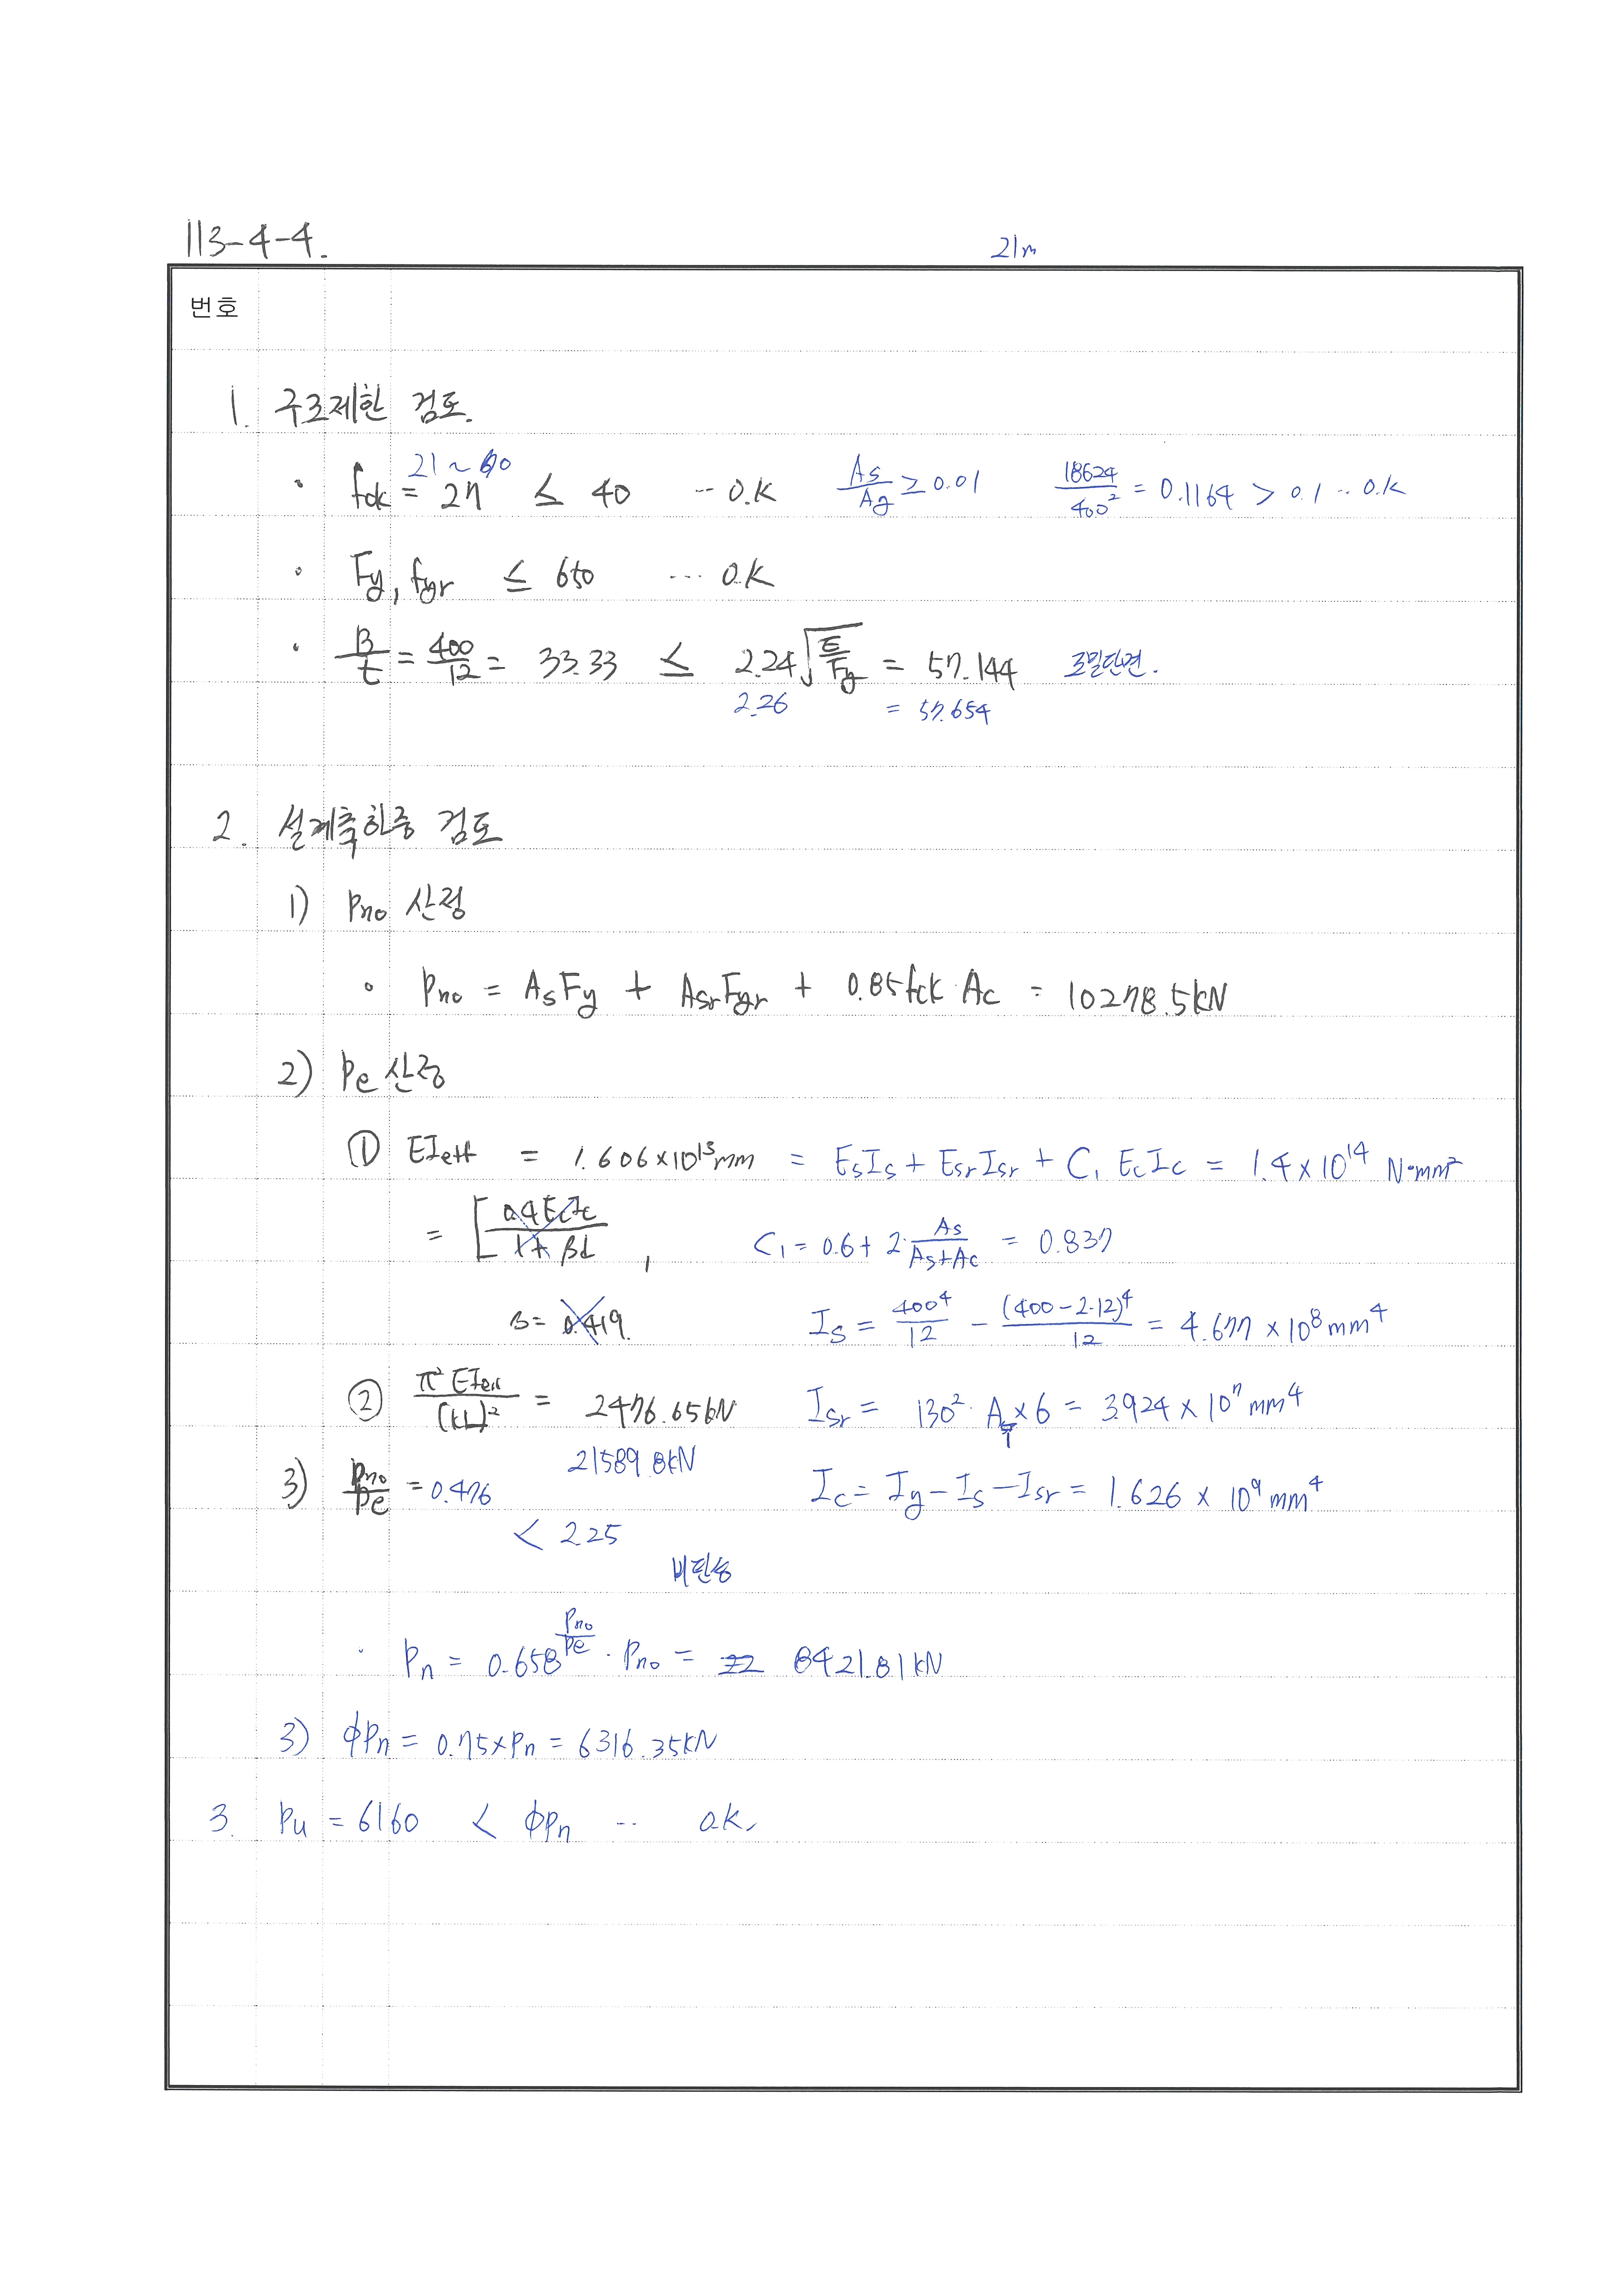 113-4-4.
21m
번호
1. 구조제한 검토.
21~60
· fck = 27 ≤ 40 ‥ O.K As/Ag ≥ 0.01 18624/400² = 0.1164 > 0.1 ‥ O.K
· Fy, fyr ≤ 650 … O.K
· B/t = 400/12 = 33.33 ≤ 2.24√(E/Fy) = 57.144 조밀단면.
2.26 = 57.654
2. 설계축하중 검토
1) Pno 산정
· Pno = AsFy + AsrFyr + 0.85fck·Ac = 10278.5kN
2) Pe 산정
① EIeff = 1.606×10¹³mm = EsIs + EsrIsr + C₁EcIc = 1.4×10¹⁴ N·mm²
= [0.4EcIc/1+βd, C₁ = 0.6+2·As/(As+Ac) = 0.837
B = 0.419. Is = 400⁴/12 - (400-2·12)⁴/12 = 4.677×10⁸mm⁴
② π²EIeff/(kL)² = 2476.65kN Isr = 130²·A₁×6 = 3.924×10⁷mm⁴
21589.8kN
3) Pno/Pe = 0.476 Ic = Ig-Is-Isr = 1.626×10⁹mm⁴
< 2.25
비탄성
· Pn = 0.658^(Pno/Pe)·Pno = 8421.81kN
3) ϕPn = 0.75×Pn = 6316.35kN
3. Pu = 6160 < ϕPn ‥ O.K.